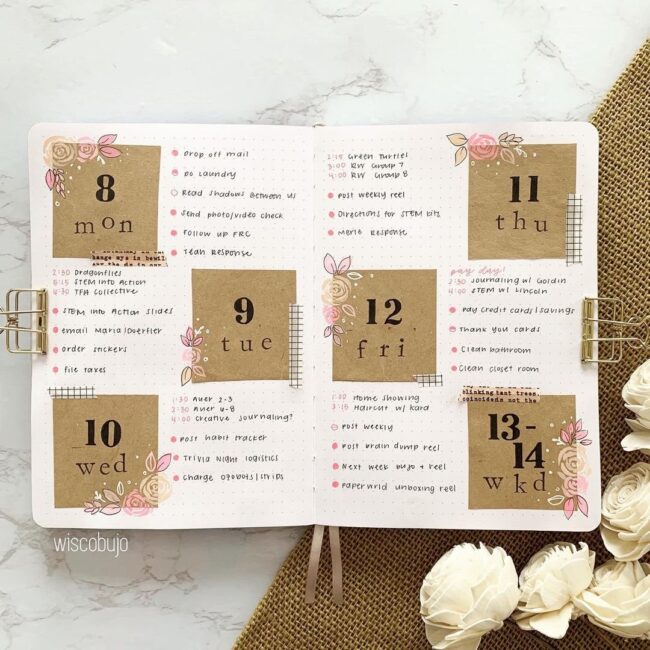 8
mon
Drop off mail
Do laundry
Read Shadows Between Us
Send photo/video check
Follow up FRC
Teah Response
hange mys is bewil
2:30 Dragonflies
STEM into Action
4:30 TFA Collective
STEM into Action slides
email Maria/Doerfler
order stickers
file taxes
9
tue
10
wed
1:30 Auer 2-3
2:30 Auer 4-8
4:00 Creative Journaling?
Post habit tracker
Trivia Night logistics
Charge Ozobots/strips
wiscobujo
2:15 Green Turtles
3:00 RW Group 7
4:00 RW Group 8
Post weekly reel
Directions for STEM kits
Marie Response
11
thu
12
fri
pay day!
2:30 Journaling w/ Goldin
4:00 STEM w/ Lincoln
Pay credit cards/savings
Thank you cards
Clean bathroom
Clean closet room
1:30 Home Showing
3:15 Haircut w/ Kard
Post weekly
Post brain dump reel
Next week bujo + reel
Paperwrld unboxing reel
blinking tant trees.
coincideds not the
13-
14
wkd